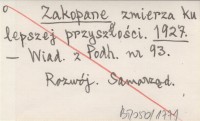 Zakopane zmierza ku
lepszej przyszłości. 1927.
— Wiad. z Podh. nr 93.
Rozwój. Samorząd.